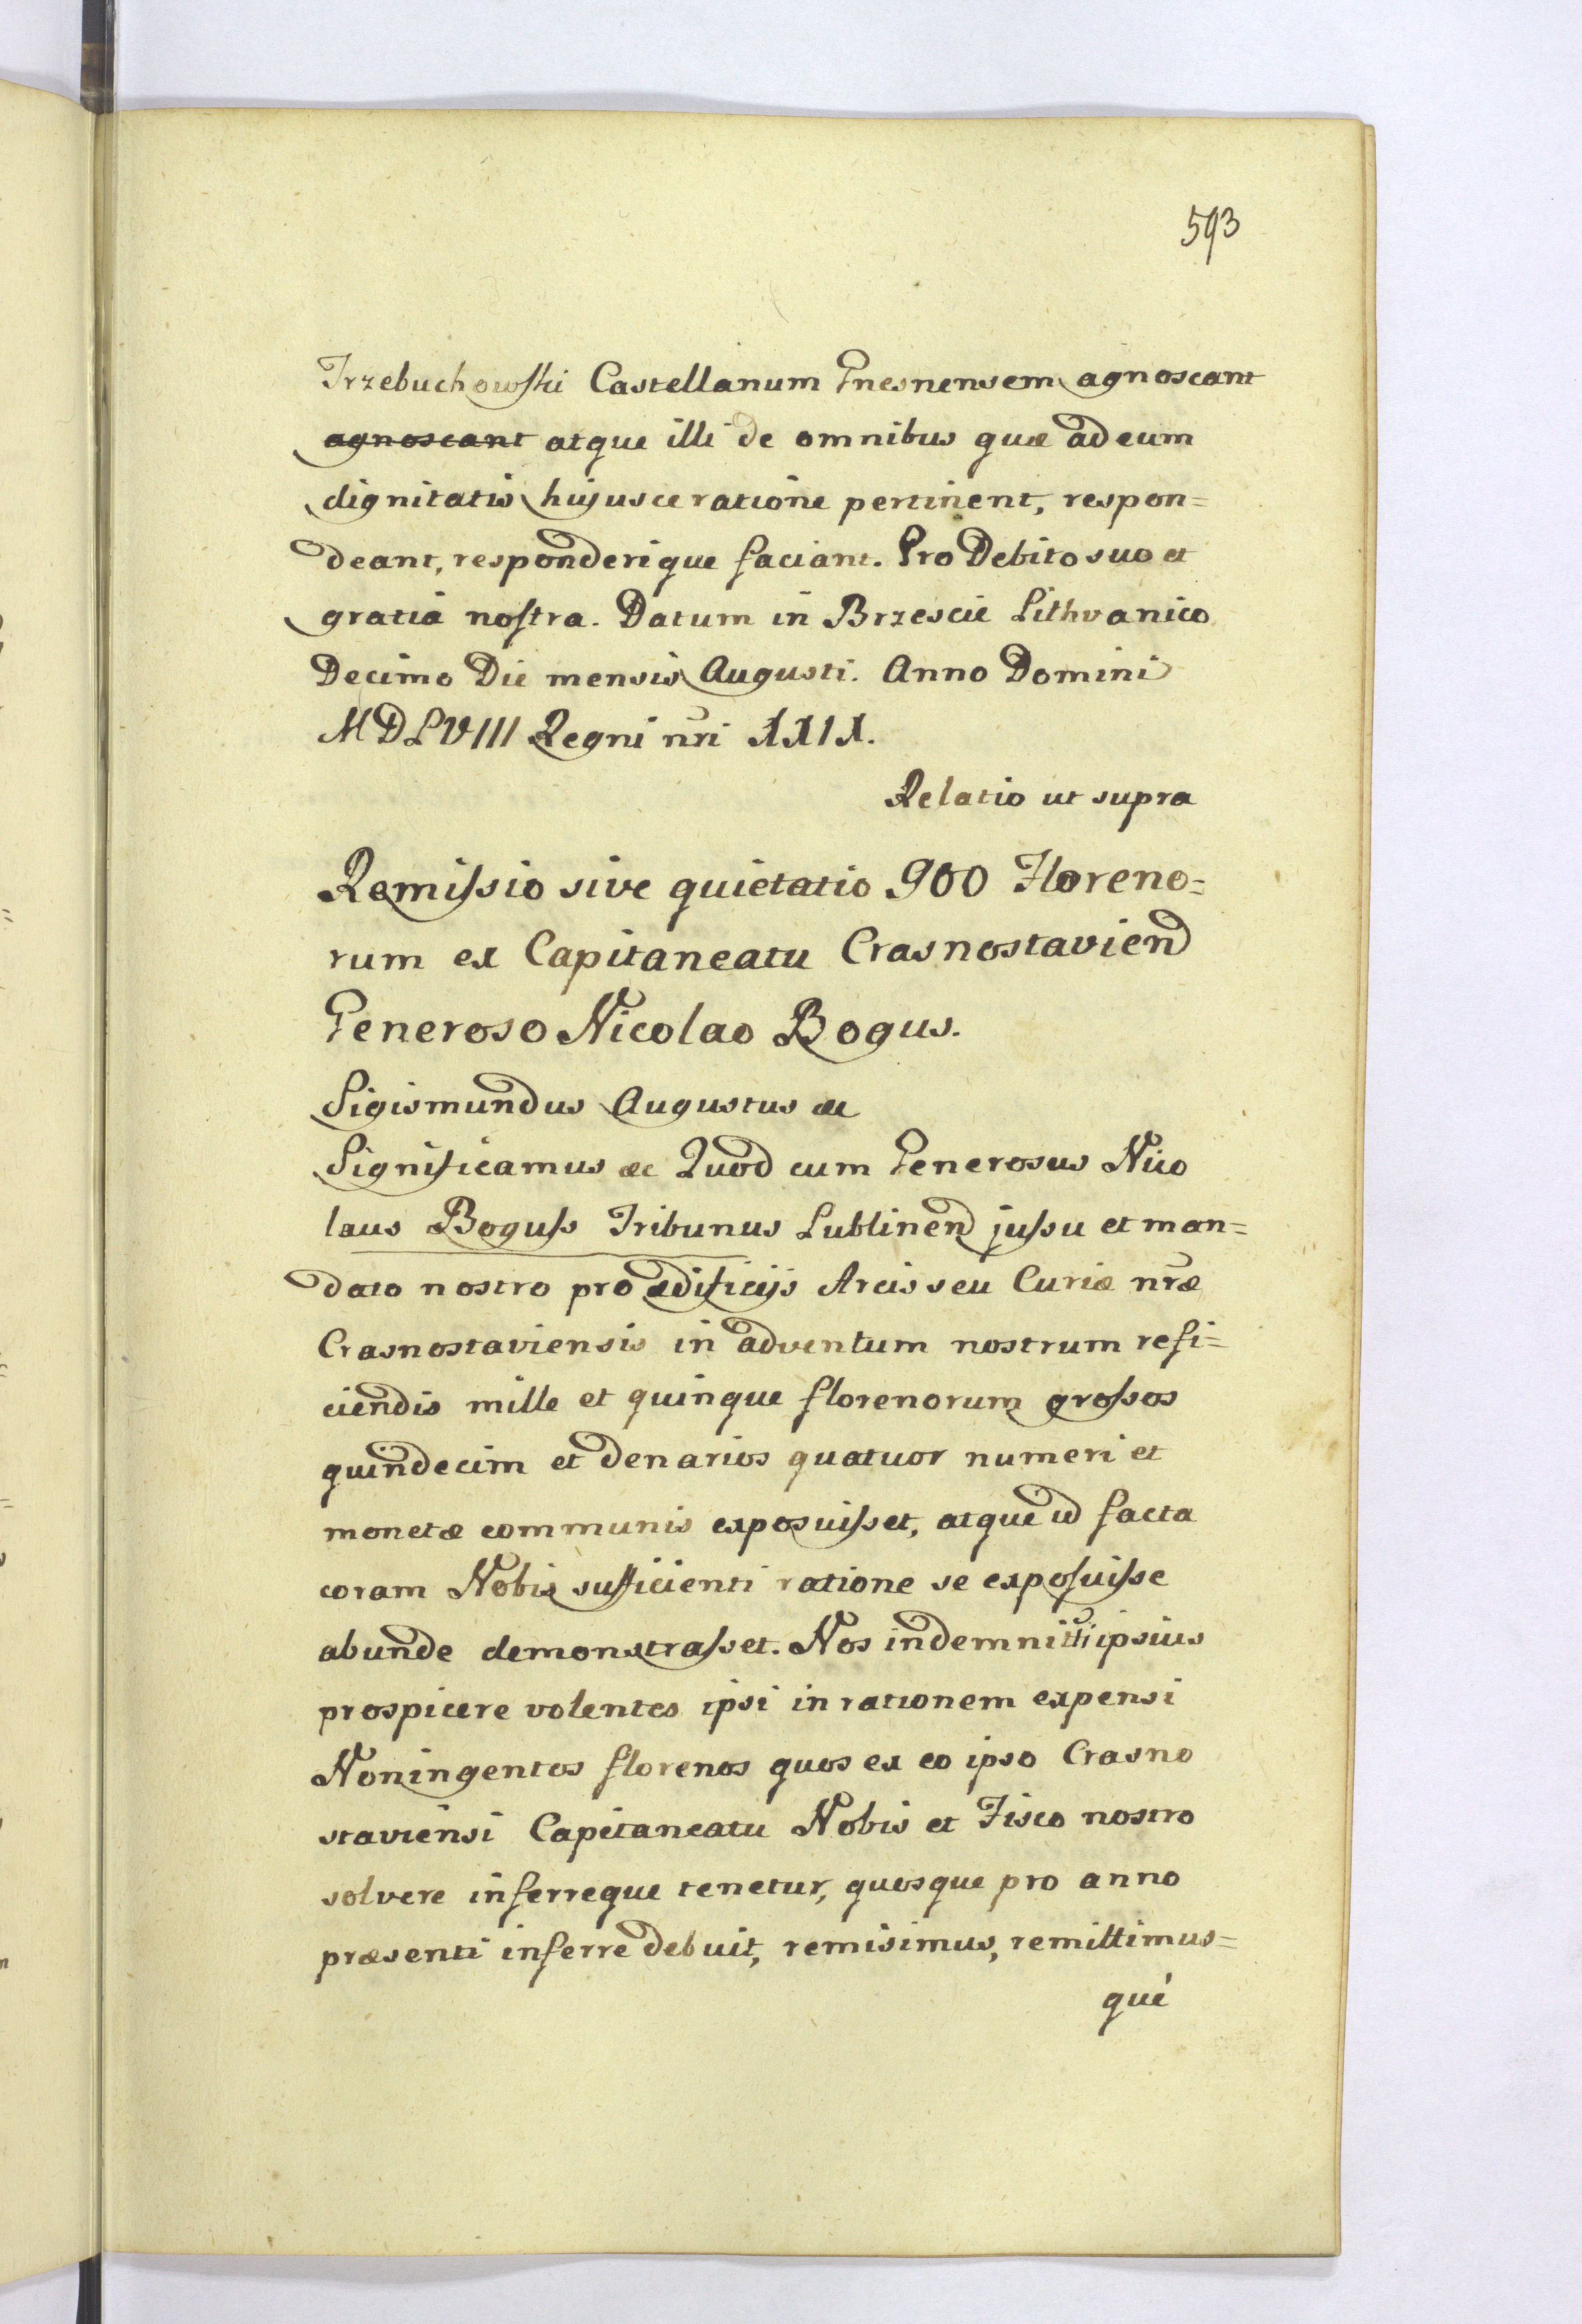 593
Trzebuchowski Castellanum Gnesnensem agnoscant
agnoscant atque illi de omnibus quæ ad eum
dignitatis hujusce ratione pertinent, respon=
deant, responderique faciant. Pro Debito suo et
gratiâ nostra. Datum in Brzescie Lithvanico
Decimo Die mensis Augusti. Anno Domini
MDLVIII Regni nri XXIX.
Relatio ut supra
Remissio sive quietatio 900 Floreno=
rum ex Capitaneatu Crasnostavien
Generoso Nicolao Bogus.
Sigismundus Augustus &c
Significamus &c Quod cum Generosus Nico
laus Boguss Tribunus Lublinen jussu et man=
dato nostro pro ædificijs Arcis seu Curiæ nræ
Crasnostaviensis in adventum nostrum refi=
ciendis mille et quinque florenorum grossos
quindecim et denarios quatuor numeri et
monetæ communis exposuisset, atque id facta
coram Nobis sufficienti ratione se exposuisse
abunde demonstrasset. Nos indemnitti ipsius
prospicere volentes ipsi in rationem expensi
Noningentos florenos quos ex eo ipso Crasno
staviensi Capitaneatu Nobis et Fisco nostro
solvere inferreque tenetur, quosque pro anno
præsenti inferre debuit, remisimus, remittimus=
que